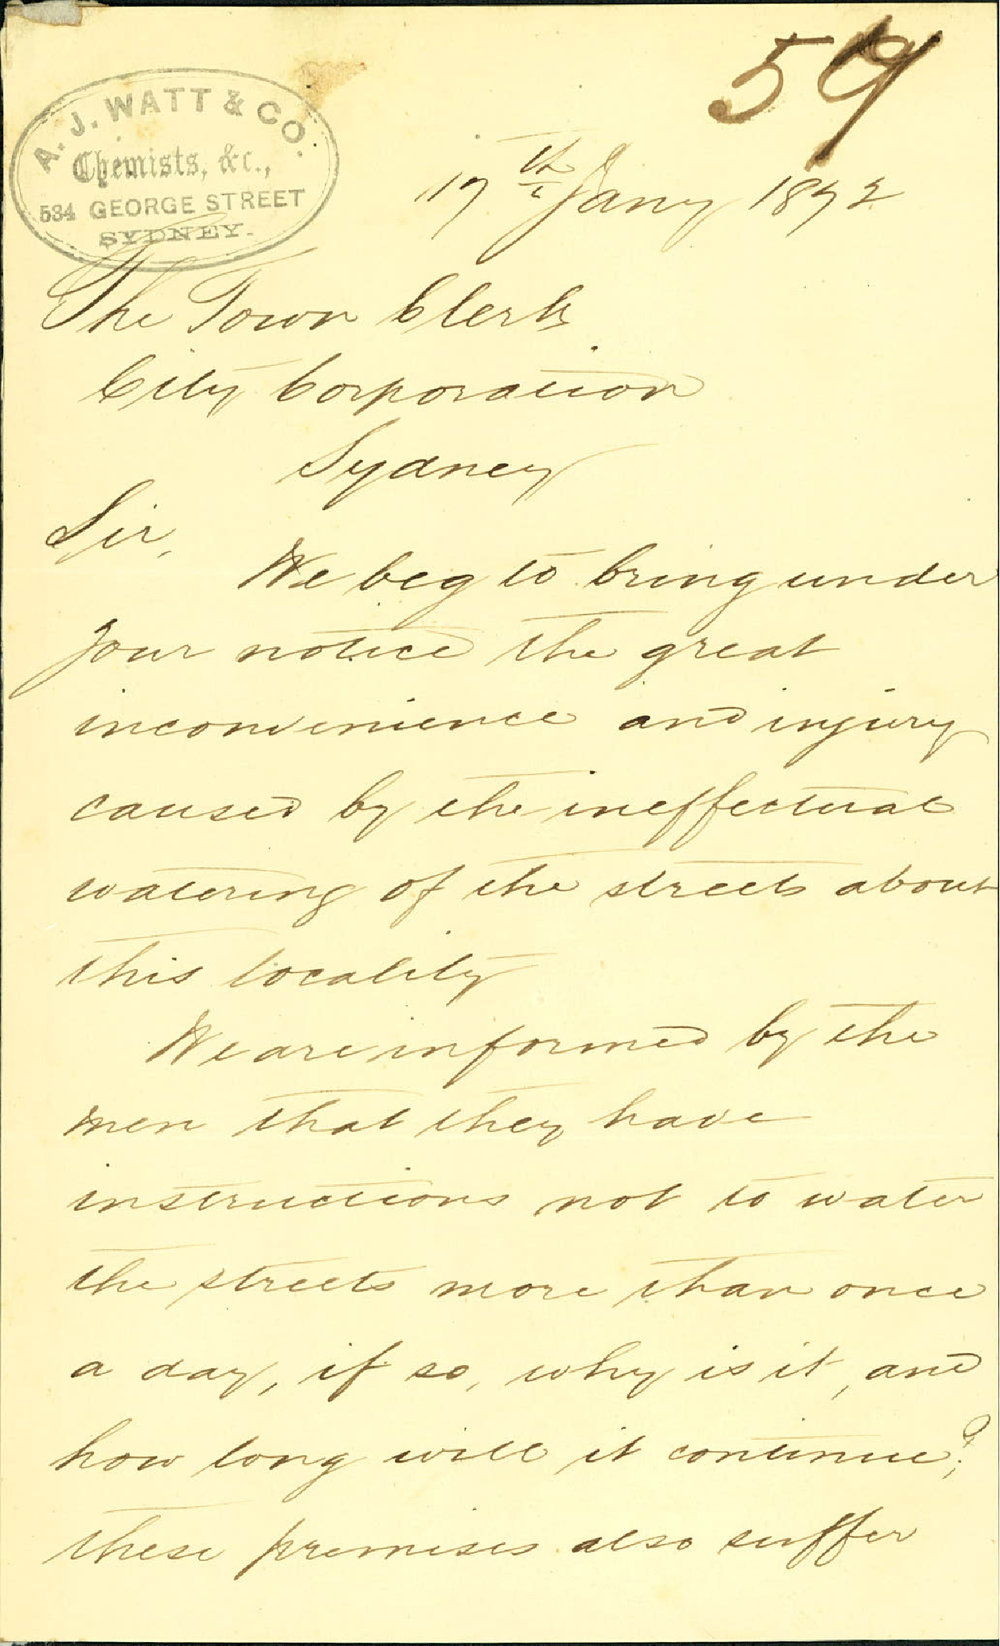 59
A. J. WATT & CO.
Chemists, &c.,
534 GEORGE STREET
SYDNEY.
17th Jany 1872
The Town Clerk
City Corporation
Sydney
Sir,
We beg to bring under
your notice the great
inconvenience and injury
caused by the ineffectual
watering of the streets about
this locality
We are informed by the
men that they have
instructions not to water
the streets more than once
a day, if so, why is it, and
how long will it continue;?
these premises also suffer